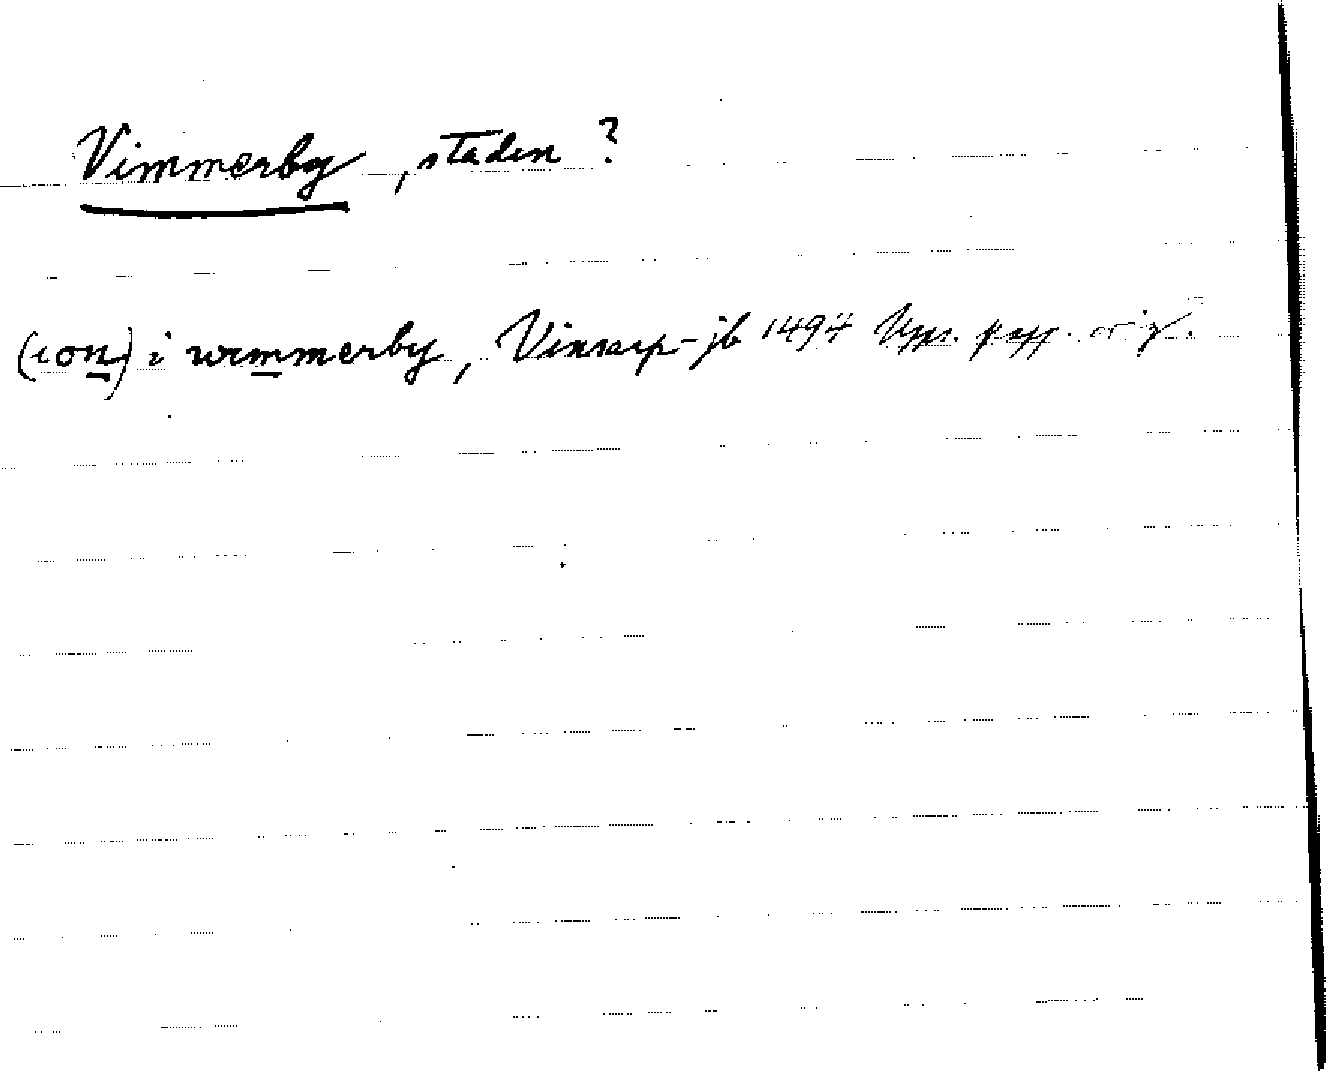 Vimmerby, staden?
(ion) i wimmerby, Vinsarp-jb 1494 Upps. papp. orig.